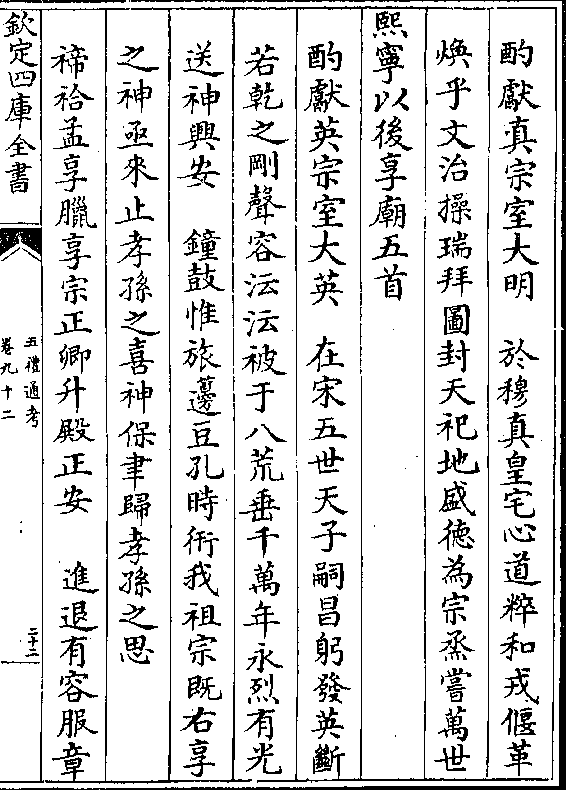 酌獻真宗室大明　於穆真皇宅心道粹和戎偃革
煥乎文治操瑞拜圖封天祀地盛德為宗烝嘗萬世
熙寧以後享廟五首
酌獻英宗室大英　在宋五世天子嗣昌躬發英斷
若乾之剛聲容沄沄被于八荒垂千萬年永烈有光
送神興安　鐘鼓惟旅籩豆孔時衎我祖宗既右享
之神亟來止孝孫之喜神保聿歸孝孫之思
禘祫孟享臘享宗正卿升殿正安　進退有容服章
欽定四庫全書
五禮通考
卷九十二
二十二